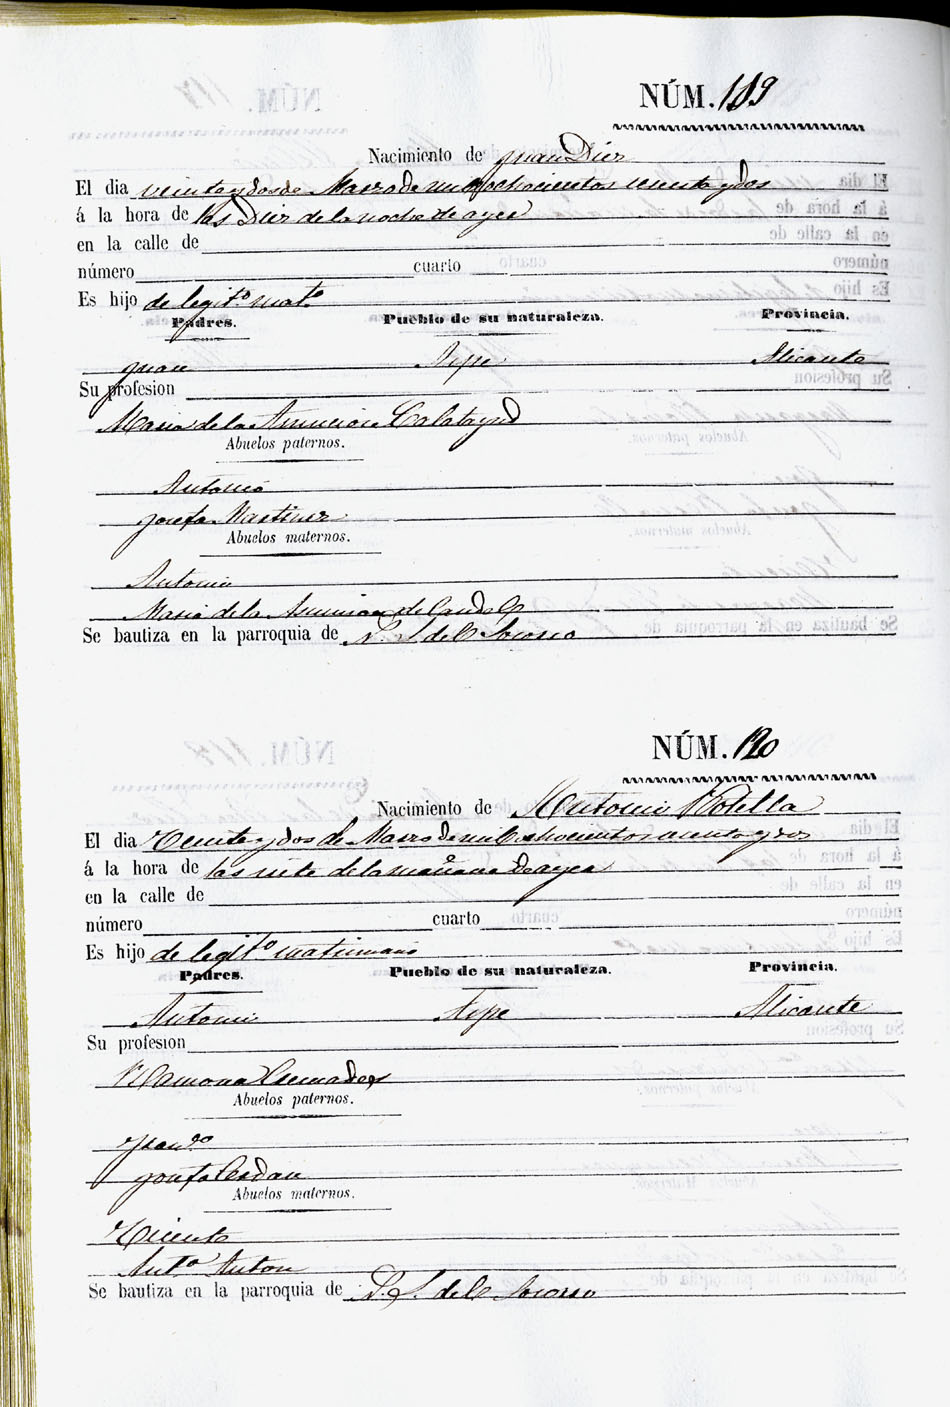 NÚM. 119
Nacimiento de Juan Diez
El dia veinte y dos de Marzo de mil ochocientos sesenta y dos
á la hora de las Diez de la noche de ayer
en la calle de
número cuarto
Es hijo de legit.º mat.º
Padres. Pueblo de su naturaleza. Provincia.
Juan Aspe Alicante
Su profesion
Maria de la Asuncion Calatayud
Abuelos paternos.
Antonio
Josefa Martinez
Abuelos maternos.
Antonio
Maria de la Asuncion de
Se bautiza en la parroquia de N. S. del Socorro
NÚM. 120
Nacimiento de Antonio Botella
El dia Veinte y dos de Marzo de mil ochocientos sesenta y dos
á la hora de las siete de la mañana de ayer
en la calle de
número cuarto
Es hijo de legit.º matrimonio
Padres. Pueblo de su naturaleza. Provincia.
Antonio Aspe Alicante
Su profesion
Ramona
Abuelos paternos.
Fran.co
Josefa Cerdan
Abuelos maternos.
Vicente
Ant.a Anton
Se bautiza en la parroquia de N. S. del Socorro